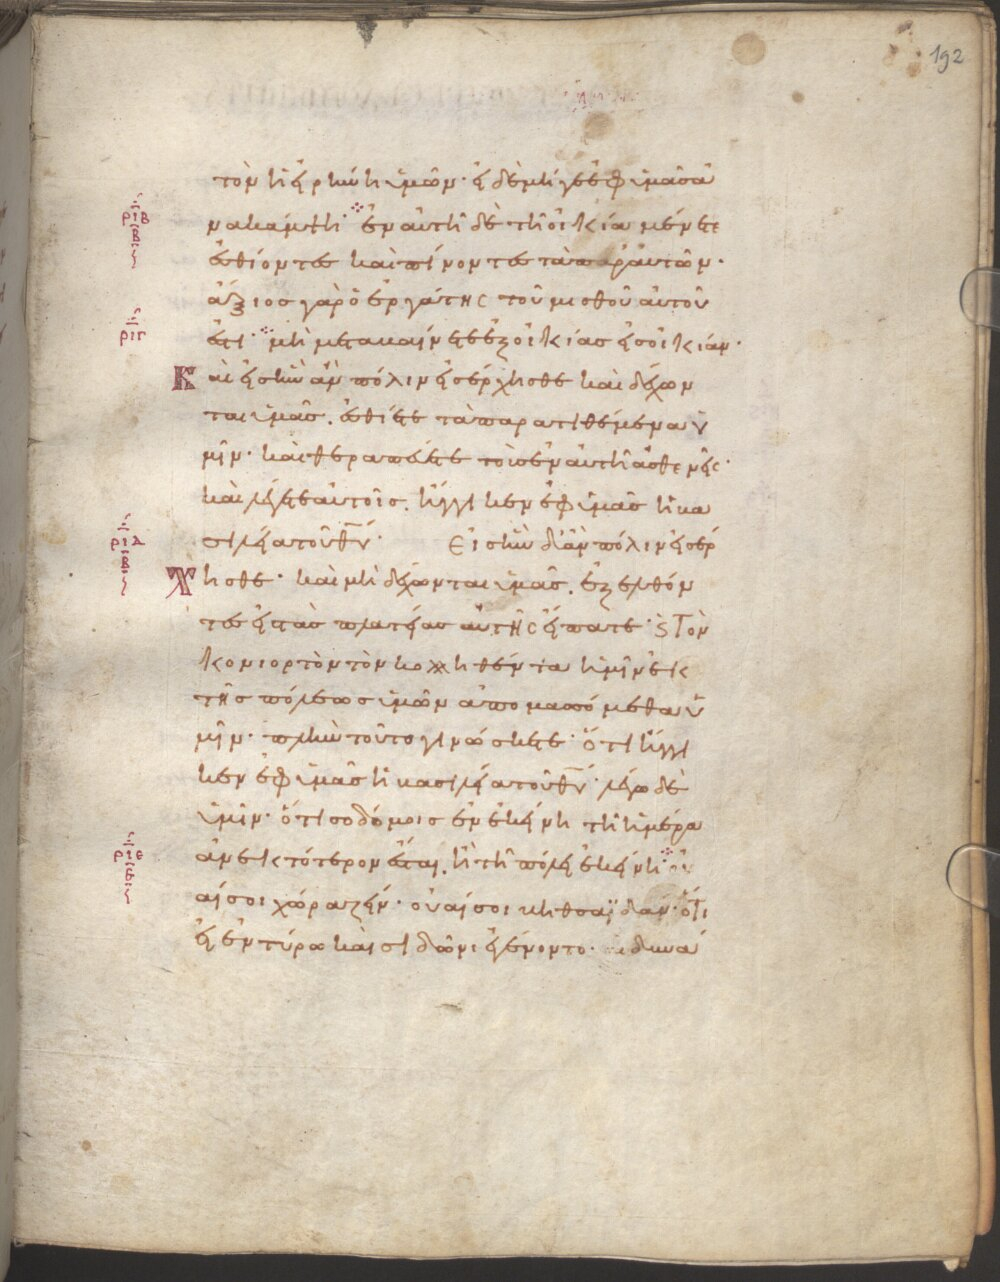 192
τὸν ἡ εἰρήνη ὑμῶν· εἰ δὲ μήγε ἐφ ὑμᾶς ἀ
ριβ
β
νακάμψη· ἐν αὐτῆ δὲ τῆ οἰκία μένετε
ἐσθίοντες καὶ πίνοντες τὰ παρ αὐτῶν·
ἄξιος γὰρ ὁ ἐργάτης τοῦ μισθοῦ αὐτοῦ
ριγ
ἐστι· μὴ μεταβαίνετε ἐξ οἰκίας εἰς οἰκίαν·
Καὶ εἰς ἣν ἂν πόλιν εἰσέρχησθε καὶ δέχων
ται ὑμᾶς. ἐσθίετε τὰ παρατιθέμενα ὑ
μῖν· καὶ θεραπεύετε τοὺς ἐν αὐτῆ ἀσθενεῖς·
καὶ λέγετε αὐτοῖς. ἤγγικεν ἐφ ὑμᾶς ἡ βα
ριδ
β
σιλεία τοῦ θυ· Εἰς ἣν δ ἂν πόλιν εἰσέρ
Χησθε· καὶ μὴ δέχωνται ὑμᾶς. ἐξελθόν
τες εἰς τὰς πλατείας αὐτῆς εἴπατε· ϗ Τὸν
κονιορτὸν τὸν κολληθέντα ἡμῖν ἐκ
τῆς πόλεως ὑμῶν ἀπομασσόμεθα ὑ
μῖν· πλὴν τοῦτο γινώσκετε· ὅτι ἤγγι
κεν ἐφ ὑμᾶς ἡ βασιλεία τοῦ θυ· λέγω δὲ
ὑμῖν· ὅτι σοδόμοις ἐν ἐκείνη τῆ ἡμέρα
ριε
ε
ἀνεκτότερον ἔσται. ἢ τῆ πόλει ἐκείνη· οὐ
αί σοι χώραζείν· οὐαί σοι βηθσαϊδάν· ὅτι
εἰ ἐν τύρω καὶ σιδῶνι ἐγένοντο· αἱ δυνά